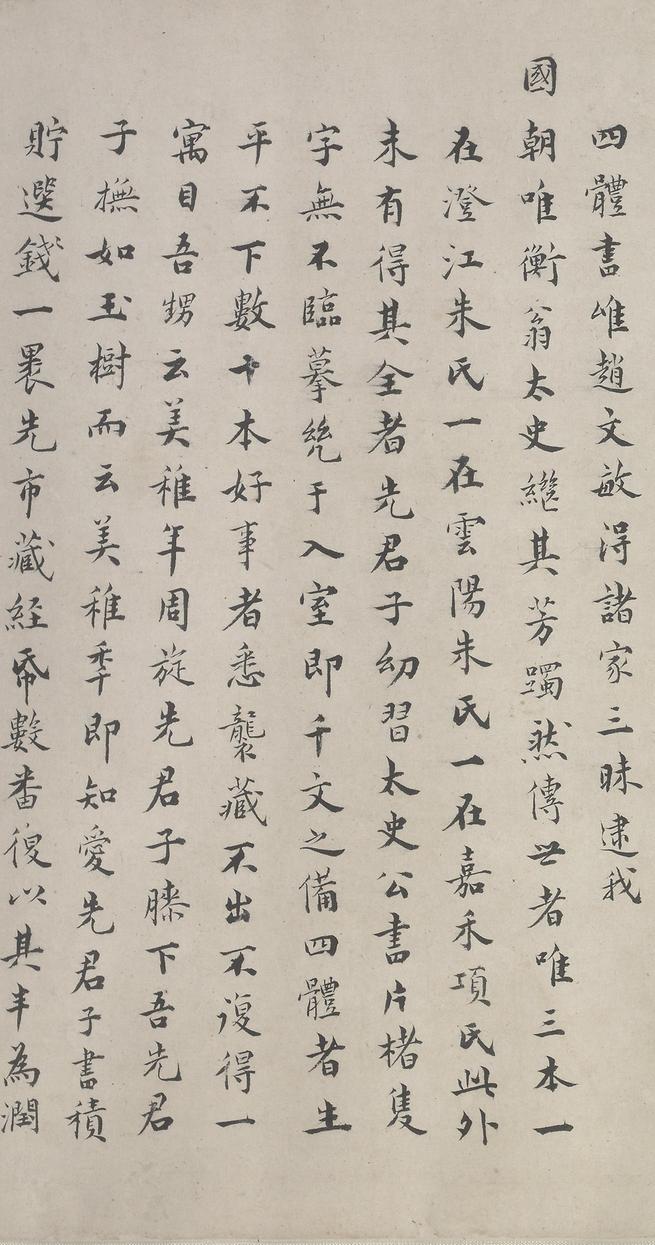 四體書唯趙文敏得諸家三昧逮我
國朝唯衡翁太史繼其芳躅然傳世者唯三本一
在澄江朱氏一在雲陽朱氏一在嘉禾項氏此外
未有得其全者先君子幼習太史公書片楮隻
字無不臨摹幾于入室即千文之備四體者生
平不下數十本好事者悉襲藏不出不復得一
寓目吾甥云美稚年周旋先君子膝下吾先君
子撫如玉樹而云美稚季即知愛先君子書積
貯選錢一褁先市藏經帋數番復以其半為潤